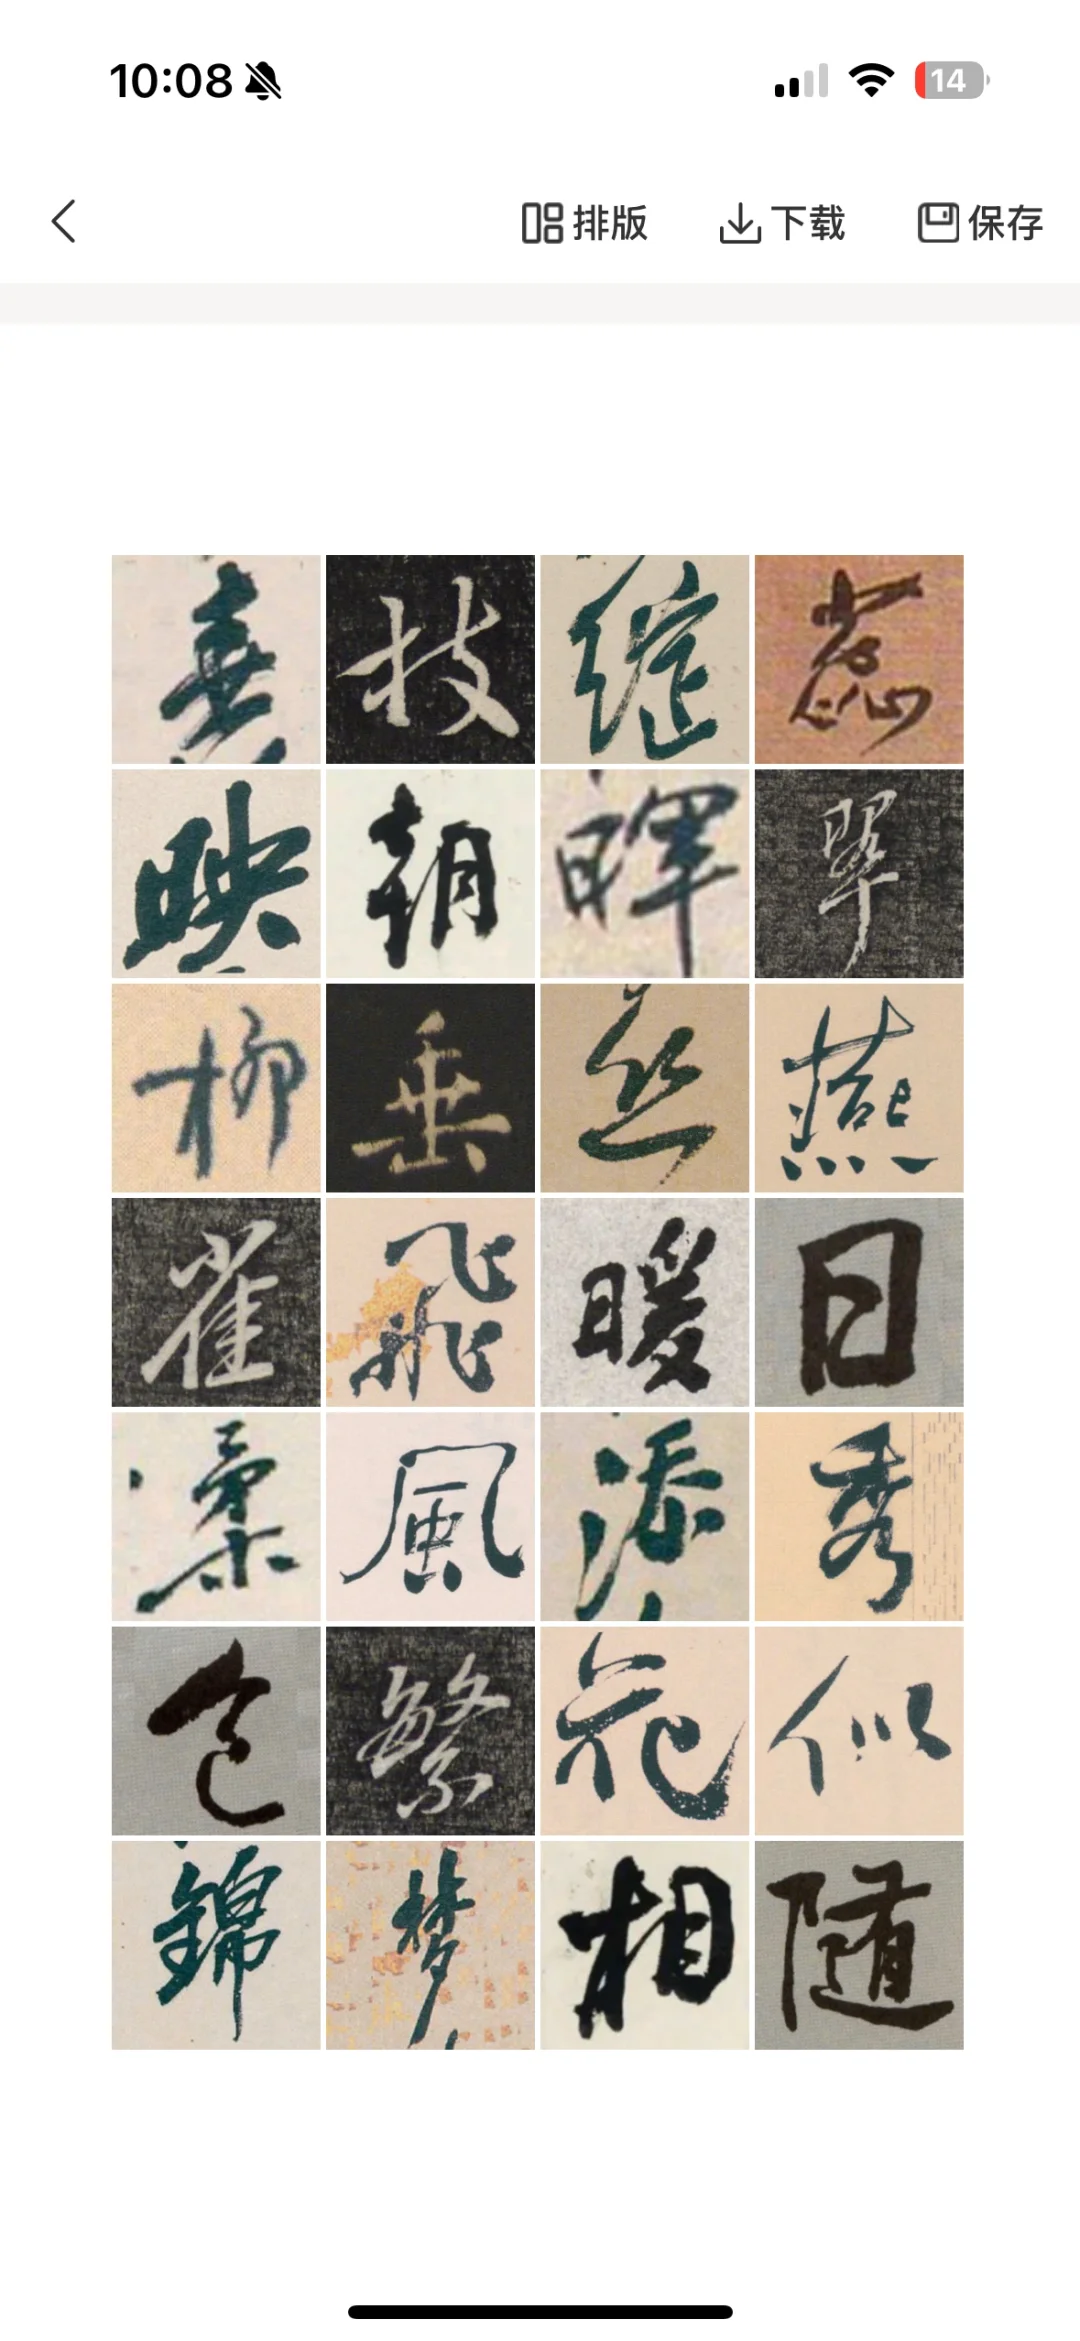 10:08 14
排版 下载 保存
春枝綻蕊
映朝暉翠
柳垂丝燕
雀飛暖日
柔風添秀
色繁花似
錦梦相随